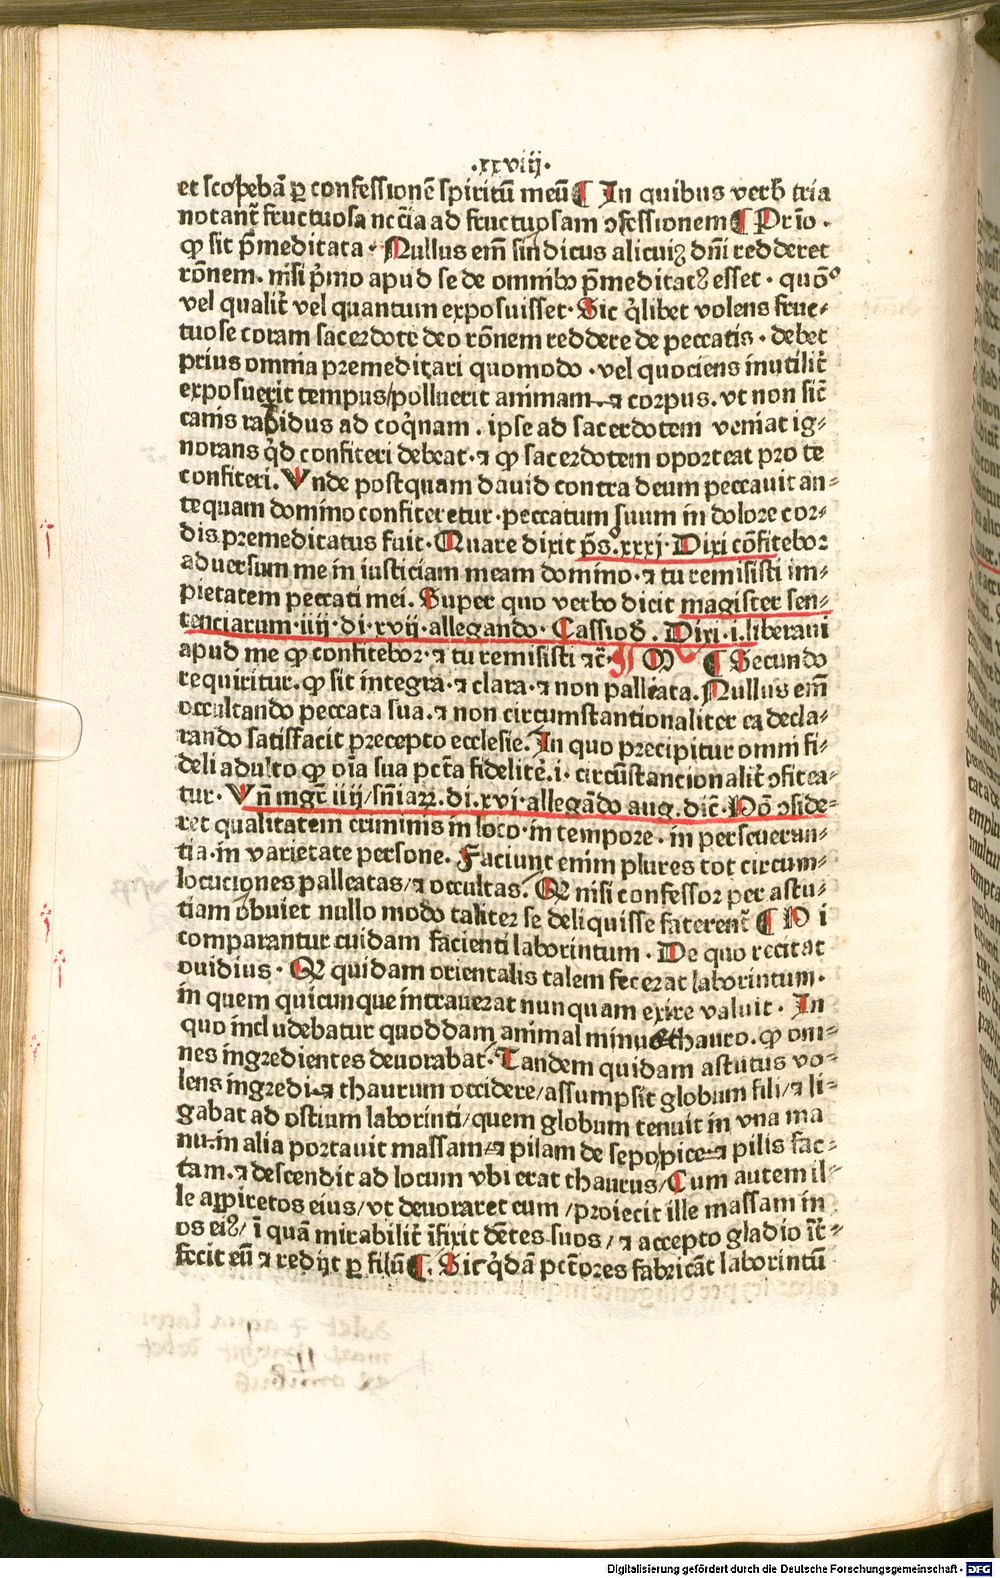 ·xxviij·
et scopebā ꝑ confessionē spiritū meū ¶ In quibus verb tria
notant̄ fructuosa nccīa ad fructuosam ↄfessionem ¶ Prīo ·
ꝙ sit p̄meditata · Nullus em̄ sindicus alicuiꝫ dn̄i redderet
rōnem · nisi p̓mo apud se de omnibꝰ p̄meditatꝰ esset · quōꝰ
vel qualit̄ vel quantum exposuisset · Sic q̓libet volens fruc⸗
tuose coram sacerdote deo rōnem reddere de peccatis · debet
prius omnia premeditari quomodo · vel quociens inutilit̄
exposuerit tempus/polluerit animam ⁊ corpus. vt non sic̄
canis rapidus ad coq̓nam . ipse ad sacerdotem veniat ig⸗
norans q̓d confiteri debeat · ⁊ ꝙ sacerdotem oporteat pro te
confiteri. Vnde postquam dauid contra deum peccauit an⸗
tequam domino confiteretur · peccatum suum in dolore cor⸗
dis premeditatus fuit · Quare dixit p̄s · xxxj · Dixi cōfitebor
aduersum me in iusticiam meam domino · ⁊ tu remisisti im⸗
pietatem peccati mei. Super quo verbo dicit magister sen⸗
tenciarum · iiij · di · xvij · allegando · Cassiod . Dixi · i. liberaui
apud me ꝙ confitebor · ⁊ tu remisisti ⁊c̄ · ¶ Secundo
requiritur. ꝙ sit integra · ⁊ clara · ⁊ non palliata. Nullus em̄
occultando peccata sua. ⁊ non circumstantionaliter ea decla⸗
rando satisfacit precepto ecclesie. In quo precipitur omni fi⸗
deli adulto ꝙ oīa sua pctā fidelit̄e. i · circūstancionalit̄ ↄfitea⸗
tur · Vn̄ mgr̄ iiij/sn̄iaꝝ. di. xvi · allegādo aug. dic̄ · Pō ↄside⸗
ret qualitatem criminis in loco · in tempore · in perseueran⸗
tia · in varietate persone. Faciunt enim plures tot circum⸗
locuciones palleatas/⁊ occultas. Q nisi confessor per astu⸗
tiam obuiet nullo modo taliter se deliquisse faterent̄ ¶ Hi
comparantur cuidam facienti laborintum · De quo recitat
ouidius · Q quidam orientalis talem fecerat laborintum ·
in quem quicunque intrauerat nunquam exire valuit · In
quo includebatur quoddam animal minothauro. ꝙ om⸗
nes ingredientes deuorabat · Tandem quidam astutus vo⸗
lens ingredi ⁊ thaurum occidere/assumpsit globum fili/⁊ li⸗
gabat ad ostium laborinti/quem globum tenuit in vna ma
nu · in alia portauit massam ⁊ pilam de sepo/pice ⁊ pilis fac⸗
tam. ⁊ descendit ad locum vbi erat thaurus/Cum autem il⸗
le apiretos eius/vt deuoraret eum/proiecit ille massam in
os eiꝰ/ ī quā mirabilit̄ īfixit dētes suos/⁊ accepto gladio īt̄⸗
fecit eū ⁊ redijt ꝑ filū ¶. Sic q̓dā pctōres fabricāt laborintū
Digitalisierung gefördert durch die Deutsche Forschungsgemeinschaft · DFG